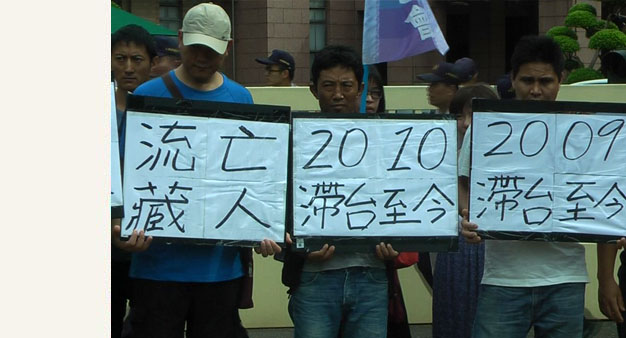 會
流亡
藏人
2010
滯台至今
2009
滯台至今